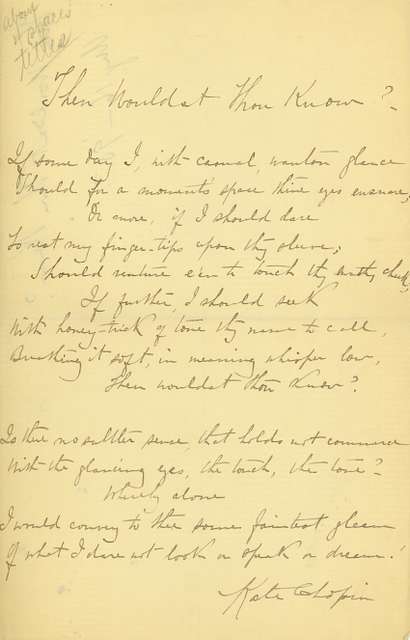 about
4 spaces
titles
Then Wouldst Thou Know?-
If some day I, with casual, wanton glance
Should for a moment's space thine eyes ensnare;
Or more, if I should dare
To rest my finger-tips upon thy sleeve;
Should venture e'en to touch thy swarthy cheek,
If further, I should seek
With honey-trick of tone thy name to call,
Breathing it soft, in meaning whisper low,
Then wouldst thou know?
Is there no subtler sense, that holds not commerce
With the glancing eyes, the touch, the tone?-
Whereby alone
I would convey to thee some faintest gleam
Of what I dare not look or speak or dream!
Kate Chopin